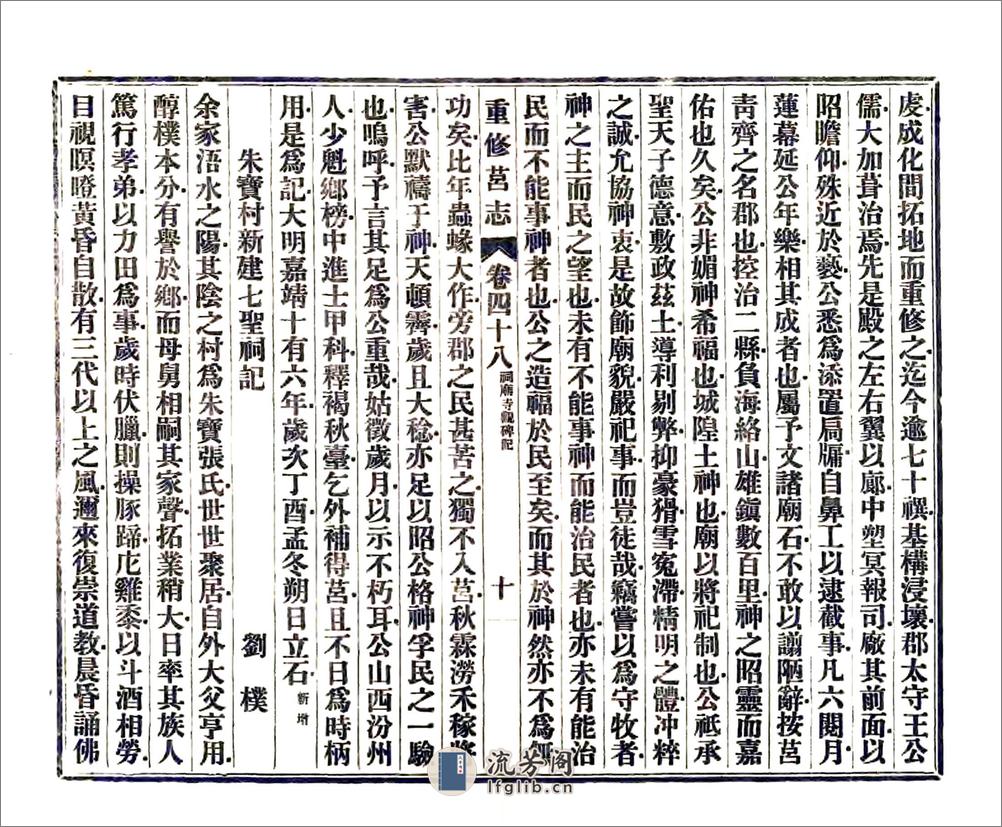 虔成化間拓地而重修之迄今逾七十禩基構浸壞郡太守王公
儒大加葺治焉先是殿之左右翼以廊中塑冥報司廠其前面以
昭瞻仰殊近於褻公悉為添置扃牖自鼻工以逮截事凡六閱月
蓮幕延公年樂相其成者也屬予文諸廟石不敢以譾陋辭按莒
靑齊之名郡也控治二縣負海絡山雄鎭數百里神之昭靈而嘉
佑也久矣公非媚神希福也城隍土神也廟以將祀制也公祗承
聖天子德意敷政茲土導利剔弊抑豪猾雪寃滯精明之體冲粹
之誠允協神衷是故飾廟貌嚴祀事而豈徒哉竊嘗以為守牧者
神之主而民之望也未有不能事神而能治民者也亦未有能治
民而不能事神者也公之造福於民至矣而其於神然亦不為無
重修莒志 卷四十八 祠廟寺觀碑記 十
功矣比年蟲蝝大作旁郡之民甚苦之獨不入莒秋霖澇禾稼將
害公默禱于神天頓霽歲且大稔亦足以昭公格神孚民之一驗
也嗚呼予言其足為公重哉姑徵歲月以示不朽耳公山西汾州
人少魁鄉榜中進士甲科釋褐秋臺乞外補得莒且不日為時柄
用是為記大明嘉靖十有六年歲次丁酉孟冬朔日立石 新增
朱寶村新建七聖祠記 劉樸
余家浯水之陽其陰之村為朱寶張氏世世聚居自外大父亨用
醇樸本分有譽於鄉而母舅相嗣其家聲拓業稍大日率其族人
篤行孝弟以力田為事歲時伏臘則操豚蹄庀雞黍以斗酒相勞
目視瞑瞪黃昏自散有三代以上之風邇來復崇道教晨昏誦佛
流芳阁
lfglib.cn